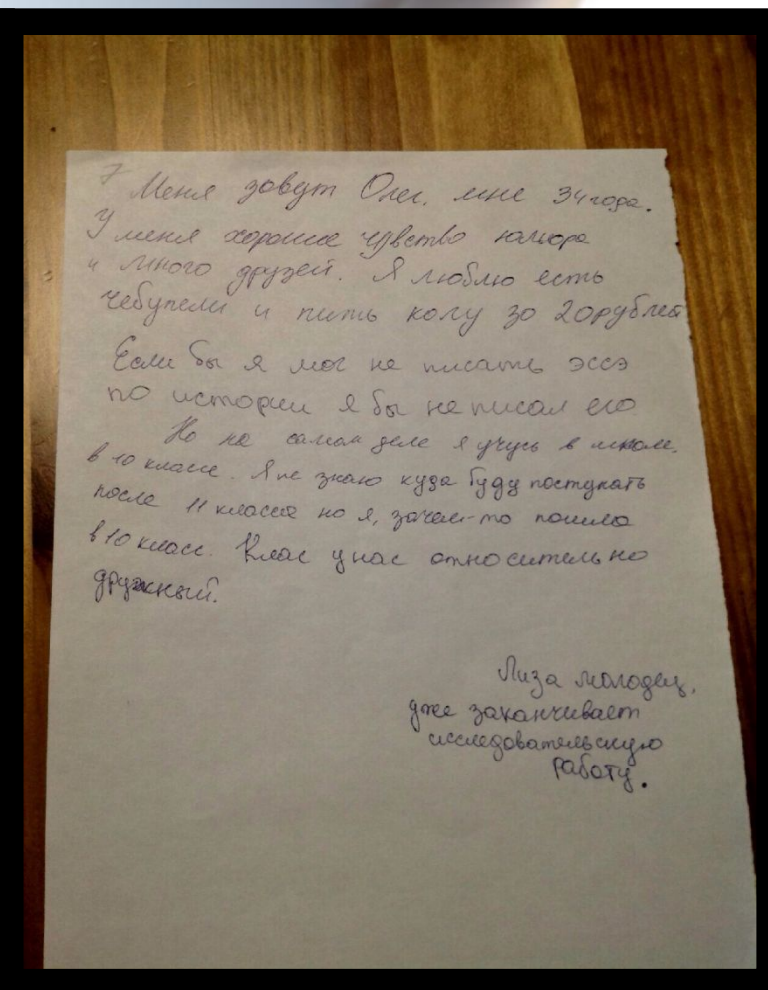 7
Меня зовут Олег, мне 34 года.
У меня хорошее чувство юмора
и много друзей. Я люблю есть
чебупели и пить колу за 20 рублей
Если бы я мог не писать эссэ
по истории я бы не писал его
Но на самом деле я учусь в школе,
в 10 классе. Я не знаю куда буду поступать
после 11 класса но я, зачем-то пошла
в 10 класс. Клас у нас относительно
дружный.
Лиза молодец,
уже заканчивает
исследовательскую
работу.